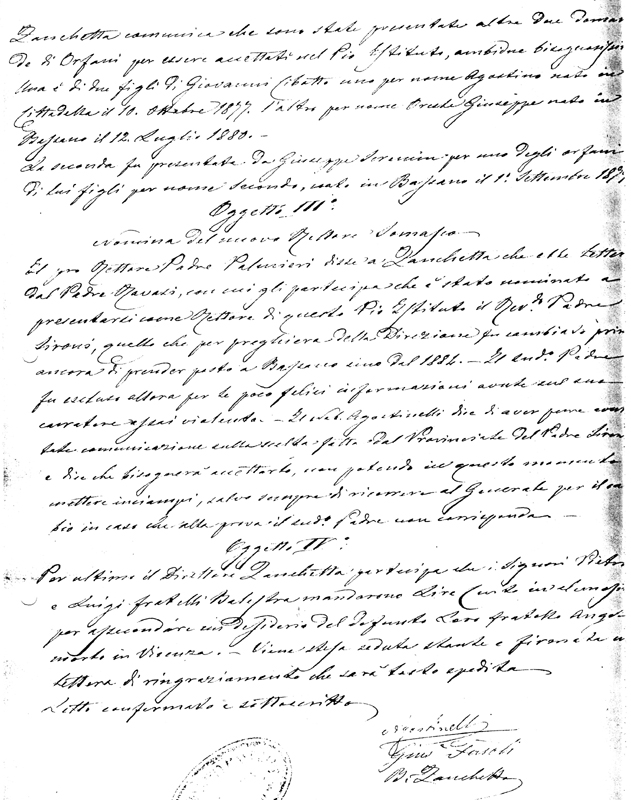 Zanchetta comunica che sono state presentate altre due doman
de di Orfani per essere accettati nel Pio Istituto, ambidue bisognosissi
Una è di due figli di Giovanni Cibatto uno per nome Agostino nato in
Cittadella il 10. Ottobre 1877. l'altro per nome Oreste Giuseppe nato in
Bassano il 12. Luglio 1880. —
La seconda fu presentata da Giuseppe Seremin per uno degli orfani
di lui figli per nome Secondo, nato in Bassano il 1º Settembre
Oggetto III.º
Nomina del nuovo Rettore Somasco
Il pro Rettore Padre Palmieri disse a Zanchetta che ebbe lettera
dal Padre Ravasi, con cui gli partecipa che è stato nominato a
presentarsi come Rettore di questo Pio Istituto il Rev.do Padre
Sironi, quello che per preghiera della Direzione fu cambiato prim
ancora di prender posto a Bassano sino dal 1884. — Il sud.º Padre
fu escluso allora per le poco felici informazioni avute sul suo
carattere assai violento. — Il Nob. Agostinelli dice di aver pure
tata comunicazione sulla scelta fatta dal Provinciale del Padre Siron
e dice che bisognerà accettarlo, non potendo in questo momento
mettere inciampi, salvo sempre di ricorrere al Generale per il cam
bio in caso che alla prova il sud.º Padre non corrisponda —
Oggetto IV.º
Per ultimo il Direttore Zanchetta partecipa che i Signori Pietro
e Luigi fratelli Balestra mandarono Lire Cento in elemosi
per assecondare un desiderio del defunto Loro fratello Angelo
morto in Vicenza. — Viene stesa seduta stante e firmata u
lettera di ringraziamento che sarà tosto spedita
Letto confermato e sottoscritto
Agostinelli
Gius Faschi
B. Zanchetta